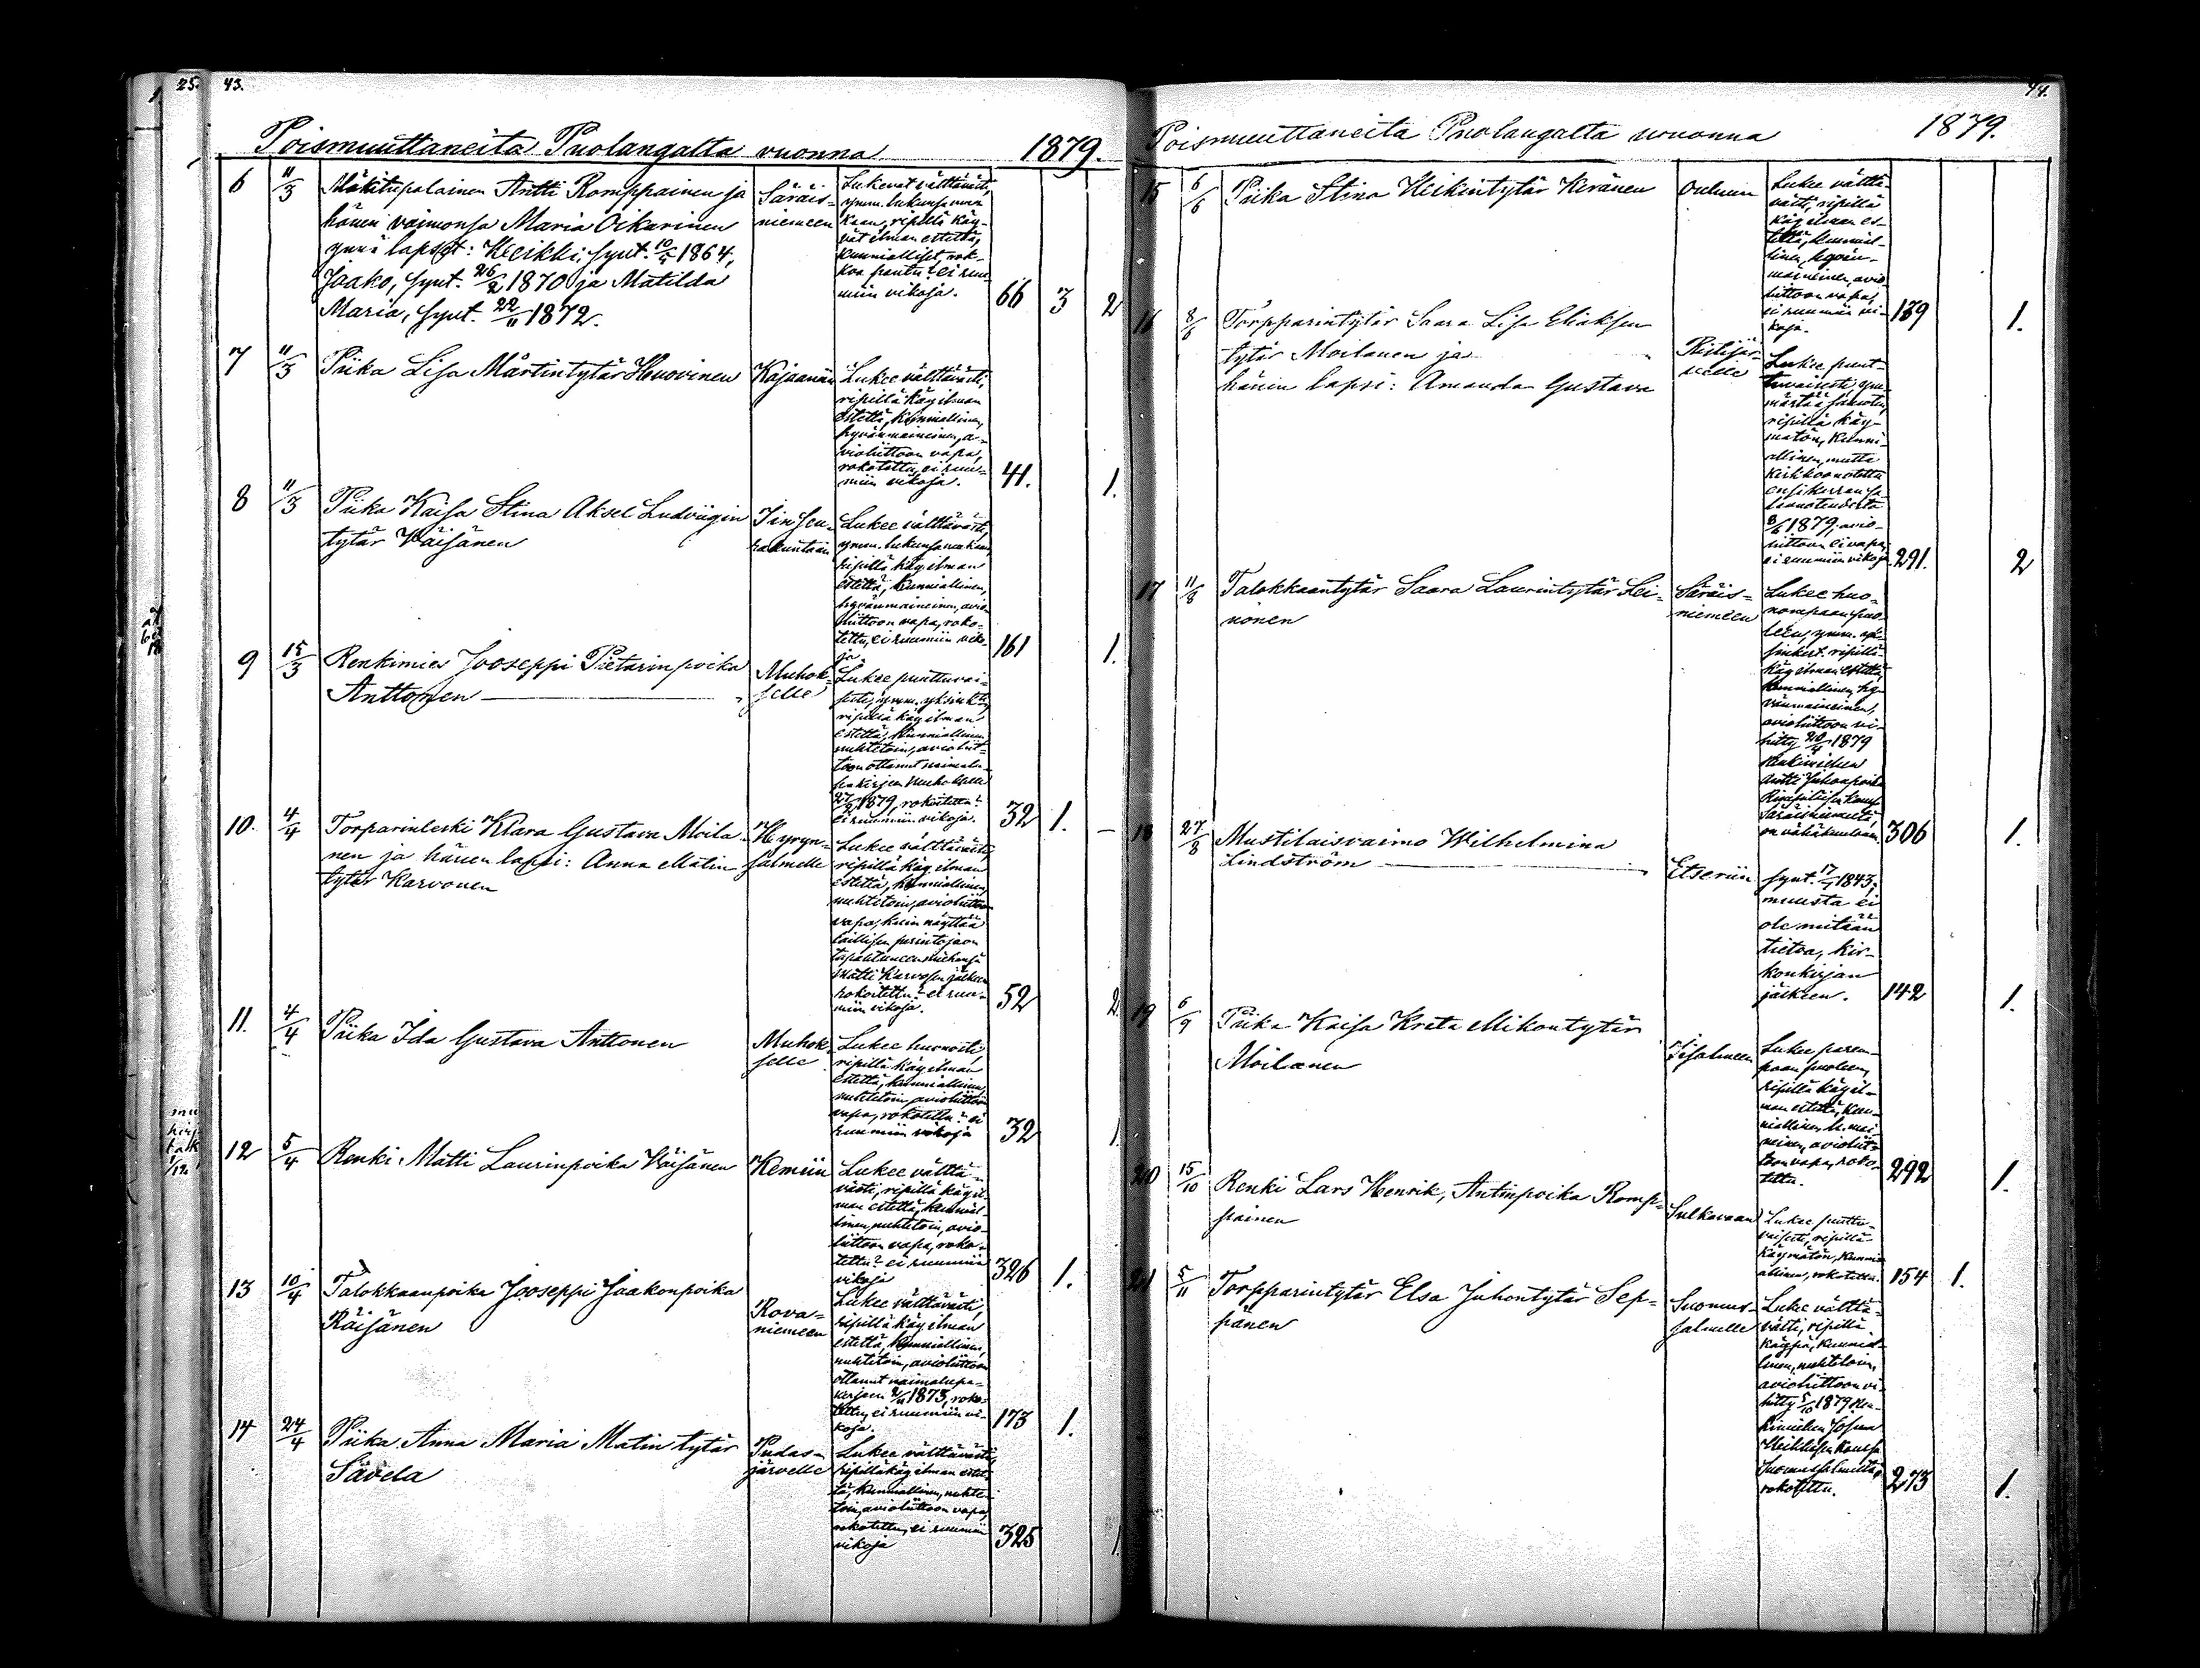 25.
43.
Poismuuttaneita Puolangalta vuonna 1879.
6 11/3 Mäkitupalainen Antti Romppainen ja
hänen vaimonsa Maria Oikarinen
ynnä lapset: Heikki, synt. 10/5 1864,
Jaako, synt. 26/2 1870 ja Matilda
Maria, synt. 22/11 1872.
Säräis-
niemeen
Lukevat välttävästi,
ymm. lukunsa mu
kaan, ripillä käy-
vät ilman estettä,
kunnialliset, rok-
koa pantu? ei ruu-
miin vikoja.
66 3 2
7 11/3 Piika Lisa Mårtintytär Huovinen
Kajaaniin
Lukee välttävästi,
ripillä käy ilman
estettä, kunniallinen,
hyvänmaineinen, a-
violiittoon vapa,
rokotettu, ei ruu-
miin vikoja.
41. 1.
8 11/3 Piika Kaisa Stina Aksel Ludviigin
tytär Väisänen
Iin seu-
rakuntaan
Lukee välttävästi,
ymm. lukunsa mukaan,
ripillä käy ilman
estettä, kunniallinen,
hyvänmaineinen, avio
liittoon vapa, roko-
tettu, ei ruumiin viko-
ja.
161 1.
9 15/3 Renkimies Jooseppi Pietarinpoika
Anttonen
Muhok-
selle
Lukee puuttuvai-
sesti, ymm. yksinkert.
ripillä käy ilman
estettä, kunniallinen
nuhtetoin, avioliit-
toon ottanut naimalu-
pakirjan Muhokselle
27/2 1879, rokotettu?
ei ruumiin vikoja.
32 1. –
10. 4/4 Torparinleski Klara Gustava Moila-
nen ja hänen lapsi: Anna Matin
tytär Karvonen
Hyryn-
salmelle
Lukee välttävästi,
ripillä käy ilman
estettä, kunniallinen,
nuhtetoin, avioliittoon
vapa, kuin näyttää
laillisen perintöjaon
tapahtuneen miehensä
Matti Karvosen jälkeen
rokotettu? ei ruu-
miin vikoja.
52 2
11. 4/4 Piika Ida Gustava Anttonen
Muhok-
selle
Lukee huonosti,
ripillä käy ilman
estettä, kunniallinen,
nuhtetoin, avioliittoon
vapa, rokotettu? ei
ruumiin vikoja
32 1
12 5/4 Renki Matti Laurinpoika Väisänen
Kemiin
Lukee välttä-
västi, ripillä käy il-
man estettä, kunnial-
linen, nuhtetoin, avio-
liittoon vapa, roko-
tettu? ei ruumiin
vikoja
326 1.
13 10/4 Talokkaanpoika Jooseppi Jaakonpoika
Räisänen
Rova-
niemeen
Lukee välttävästi,
ripillä käy ilman
estettä, kunniallinen,
nuhtetoin, avioliittoon
ottanut naimalupa-
kirjaan 2/11 1873, roko-
tettu, ei ruumiin vi-
koja.
173 1.
14 24/4 Piika Anna Maria Matin tytär
Sävela
Pudas-
järvelle
Lukee välttävästi,
ripillä käy ilman estet-
tä, kunniallinen, nuhte-
toin, avioliittoon vapa,
rokotettu, ei ruumiin
vikoja
325 1
44.
Poismuuttaneita Puolangalta vuonna 1879.
15 6/6 Piika Stina Heikintytär Keränen
Ouluun
Lukee välttä-
västi, ripillä
käy ilman es-
tettä, kunnial-
linen, hyvän-
maineinen, avio
liittoon vapa,
ei ruumiin vi-
koja.
189 1.
16 8/8 Torpparintytär Saara Lisa Eliaksen
tytär Moilanen ja
hänen lapsi: Amanda Gustava
Ristijär-
velle
Lukee puut-
tuvaisesti, ym-
märtää samoten,
ripillä käy-
mätön, kunni-
allinen, mutta
kirkkoon otettu
ensikerran sa-
lavuoteudesta
8/6 1879, avio-
liittoon ei vapa,
ei ruumiin vikoja
291. 2
17 11/8 Talokkaantytär Saara Laurintytär Lei-
nonen
Säräis-
niemeen
Lukee huo-
nompaan puo-
leen, ymm. yk-
sinkert. ripillä
käy ilman estettä,
kunniallinen, hy-
vänmaineinen,
avioliittoon vi-
hitty 20/4 1879
renkimiehen
Antti Juhonpoika
kanssa
Säräisniemeltä,
on vähäkuuloinen.
306 1.
18 27/8 Mustilaisvaimo Wilhelmina
Lindström
Etseriin
synt. 17/1 1843,
muusta ei
ole mitään
tietoa, kir-
konkirjan
jälkeen.
142 1.
19 6/9 Piika Kaisa Kreta Mikontytär
Moilanen
Iisalmeen
Lukee parem-
paan puoleen,
ripillä käy il-
man estettä, kun-
niallinen, h. mai-
neinen, avioliit-
toon vapa, roko-
tettu.
292 1.
20 15/10 Renki Lars Henrik, Antinpoika Romp-
painen
Sulkavaan
Lukee puuttu-
vaisesti, ripillä
käymätön, kunni-
allinen, rokotettu.
154 1.
21 5/11 Torpparintytär Elsa Juhontytär Sep-
pänen
Suomus-
salmelle
Lukee välttä-
västi, ripillä
käypä, kunnial-
linen, nuhtetoin,
avioliittoon vi-
hitty 5/10 1879 Ren-
kimiehen
kanssa
Suomussalmelta,
rokotettu.
273 1.